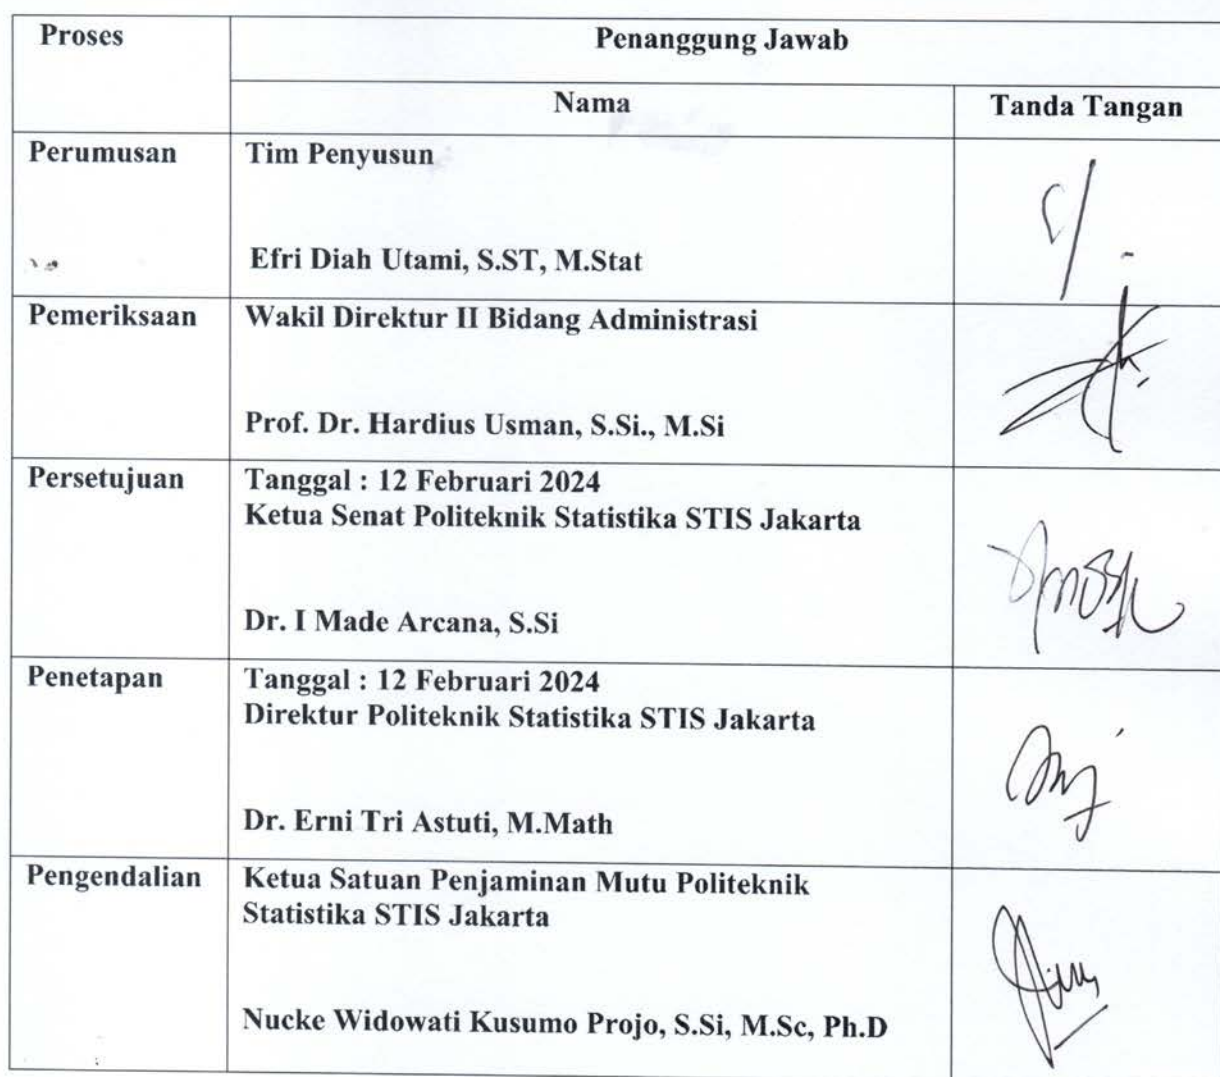 Proses
Penanggung Jawab
Nama
Tanda Tangan
Perumusan
Tim Penyusun
Efri Diah Utami, S.ST, M.Stat
Pemeriksaan
Wakil Direktur II Bidang Administrasi
Prof. Dr. Hardius Usman, S.Si., M.Si
Persetujuan
Tanggal : 12 Februari 2024
Ketua Senat Politeknik Statistika STIS Jakarta
Dr. I Made Arcana, S.Si
Penetapan
Tanggal : 12 Februari 2024
Direktur Politeknik Statistika STIS Jakarta
Dr. Erni Tri Astuti, M.Math
Pengendalian
Ketua Satuan Penjaminan Mutu Politeknik
Statistika STIS Jakarta
Nucke Widowati Kusumo Projo, S.Si, M.Sc, Ph.D